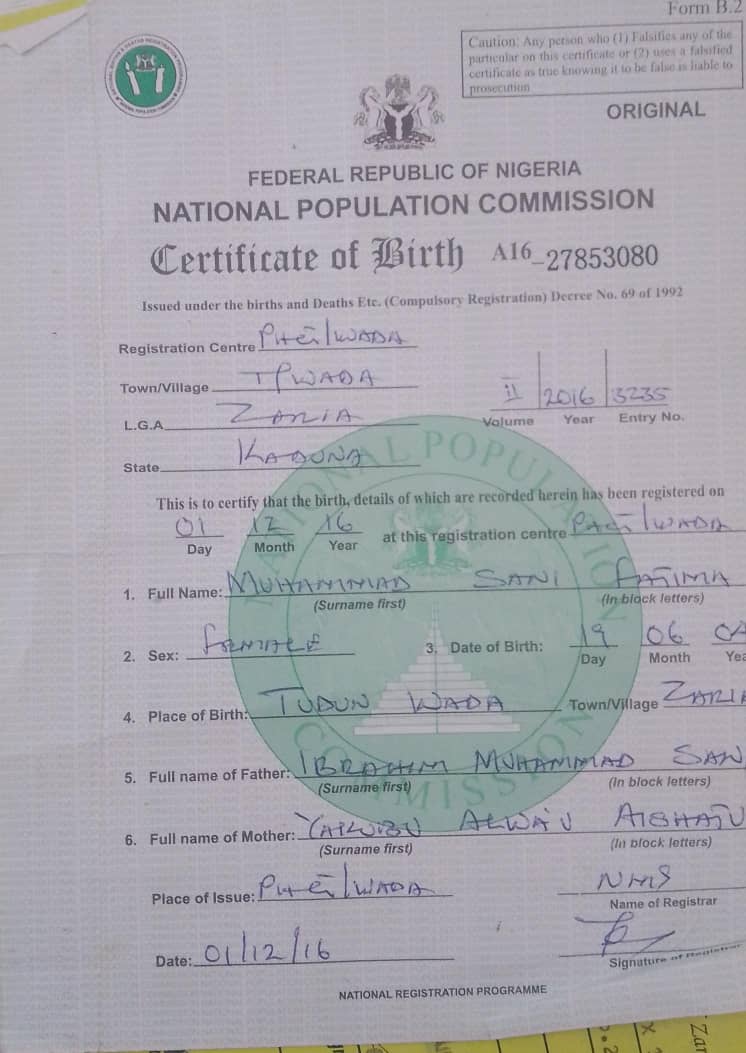 Form B.2
Caution: Any person who (1) Falsifies any of the
particular on this certificate or (2) uses a falsified
certificate as true knowing it to be false is liable to
prosecution
ORIGINAL
FEDERAL REPUBLIC OF NIGERIA
NATIONAL POPULATION COMMISSION
Certificate of Birth A16-27853080
Issued under the births and Deaths Etc. (Compulsory Registration) Decree No. 69 of 1992
Registration Centre /WADA
Town/Village T/WADA
II 2016 3235
Volume Year Entry No.
L.G.A ZARIA
State KADUNA
NATIONAL POPULATION COMMISSION
This is to certify that the birth, details of which are recorded herein has been registered on
01 12 16 at this registration centre /WADA
Day Month Year
1. Full Name: MUHAMMAD SANI FATIMA
(Surname first) (In block letters)
2. Sex: FEMALE 3. Date of Birth: 19 06
Day Month Yea
4. Place of Birth: TUDUN WADA Town/Village ZARIA
5. Full name of Father: IBRAHIM MUHAMMAD SAN
(Surname first) (In block letters)
6. Full name of Mother:
(Surname first) (In block letters)
Place of Issue: /WADA
Name of Registrar
Date: 01/12/16
Signature of Registrar
NATIONAL REGISTRATION PROGRAMME